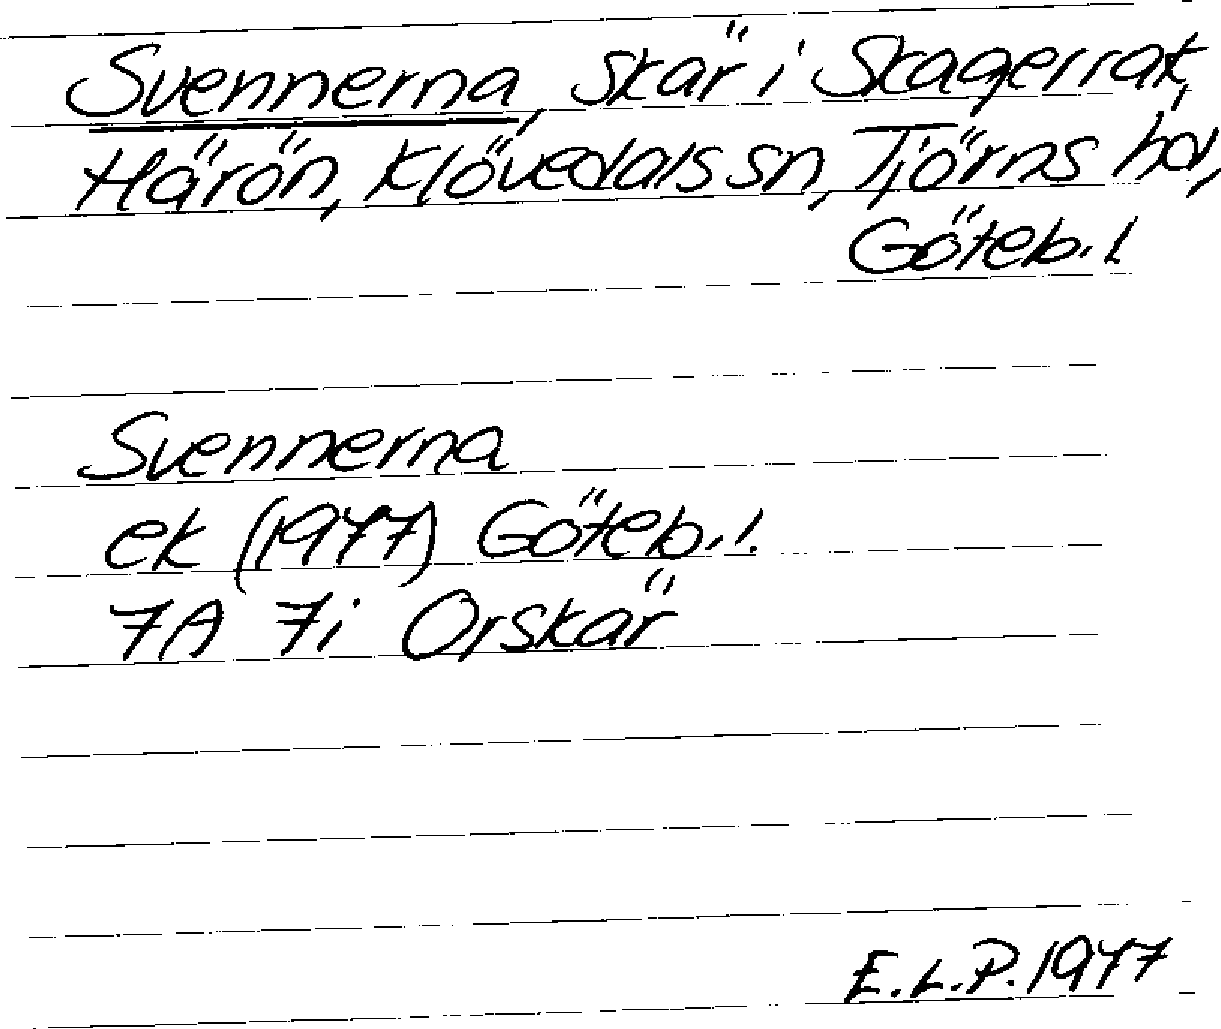 Svennerna, skär i Skagerrak,
Härön, Klövedals sn, Tjörns hd,
Göteb. l
Svennerna
ek (1977) Göteb. l.
7A 7i Orskär
E.L.P. 1977